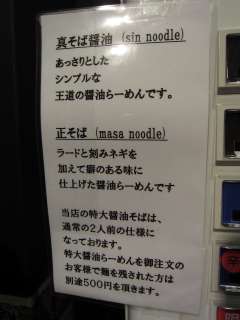 真そば醤油 (sin noodle)
あっさりとした
シンプルな
王道の醤油らーめんです。
正そば (masa noodle)
ラードと刻みネギを
加えて癖のある味に
仕上げた醤油らーめんです
当店の特大醤油そばは、
通常の2人前の仕様に
なっております。
特大醤油らーめんを御注文の
お客様で麺を残された方は
別途500円を頂きます。
辛